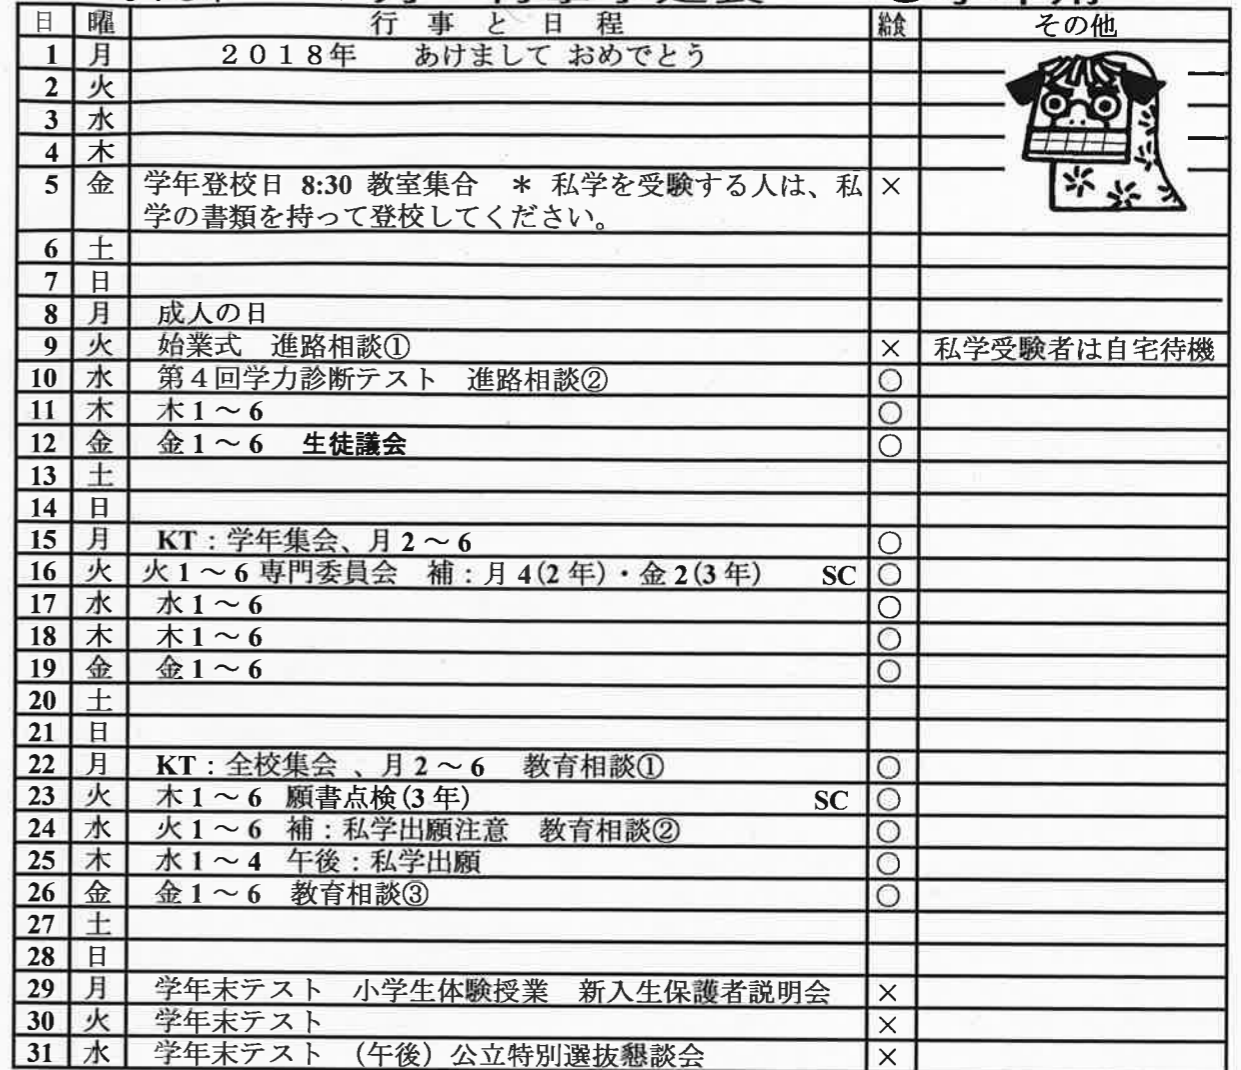 日 曜 行 事 と 日 程 給食 その他
1 月 2018年 あけまして おめでとう
2 火
3 水
4 木
5 金 学年登校日 8:30 教室集合 * 私学を受験する人は、私 ×
学の書類を持って登校してください。
6 土
7 日
8 月 成人の日
9 火 始業式 進路相談① × 私学受験者は自宅待機
10 水 第4回学力診断テスト 進路相談② ○
11 木 木1～6 ○
12 金 金1～6 生徒議会 ○
13 土
14 日
15 月 KT：学年集会、月2～6 ○
16 火 火1～6専門委員会 補：月4(2年)・金2(3年) SC ○
17 水 水1～6 ○
18 木 木1～6 ○
19 金 金1～6 ○
20 土
21 日
22 月 KT：全校集会 、月2～6 教育相談① ○
23 火 木1～6 願書点検(3年) SC ○
24 水 火1～6 補：私学出願注意 教育相談② ○
25 木 水1～4 午後：私学出願 ○
26 金 金1～6 教育相談③ ○
27 土
28 日
29 月 学年末テスト 小学生体験授業 新入生保護者説明会 ×
30 火 学年末テスト ×
31 水 学年末テスト （午後）公立特別選抜懇談会 ×